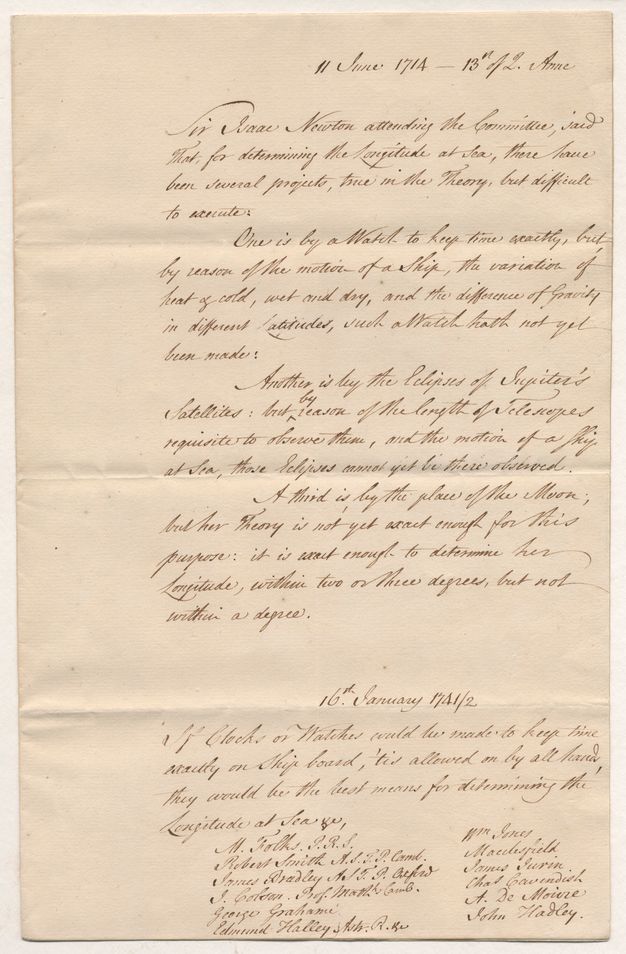 11 June 1714 — 13th of Q. Anne
Sir Isaac Newton attending the Committee, said
That, for determining the Longitude at Sea, there have
been several projects, true in the Theory, but difficult
to execute:
One is by a Watch to keep time exactly, but,
by reason of the motion of a Ship, the variation of
heat & cold, wet and dry, and the difference of Gravity
in different Latitudes, such a Watch hath not yet
been made:
Another is by the Eclipses of Jupiter's
Satellites: but by reason of the length of Telescopes
requisite to observe them, and the motion of a Ship
at Sea, those Eclipses cannot yet be there observed.
A third is by the place of the Moon;
but her Theory is not yet exact enough for this
purpose: it is exact enough to determine her
Longitude, within two or three degrees, but not
within a degree.
16th January 1741/2
If Clocks or Watches could be made to keep time
exactly on Ship board, 'tis allowed on by all hands,
they would be the best means for determining the
Longitude at Sea &c,
M. Folks. P.R.S.
Robert Smith A.S.T.P. Camb.
James Bradley A.S.T.P. Oxford
J. Colson. Prof. Math. Camb.
George Grahame
Edmund Halley, Astr. R. &c
Wm Jones
Macclesfield
James Jurin
Chas Cavendish
A. De Moivre
John Hadley.